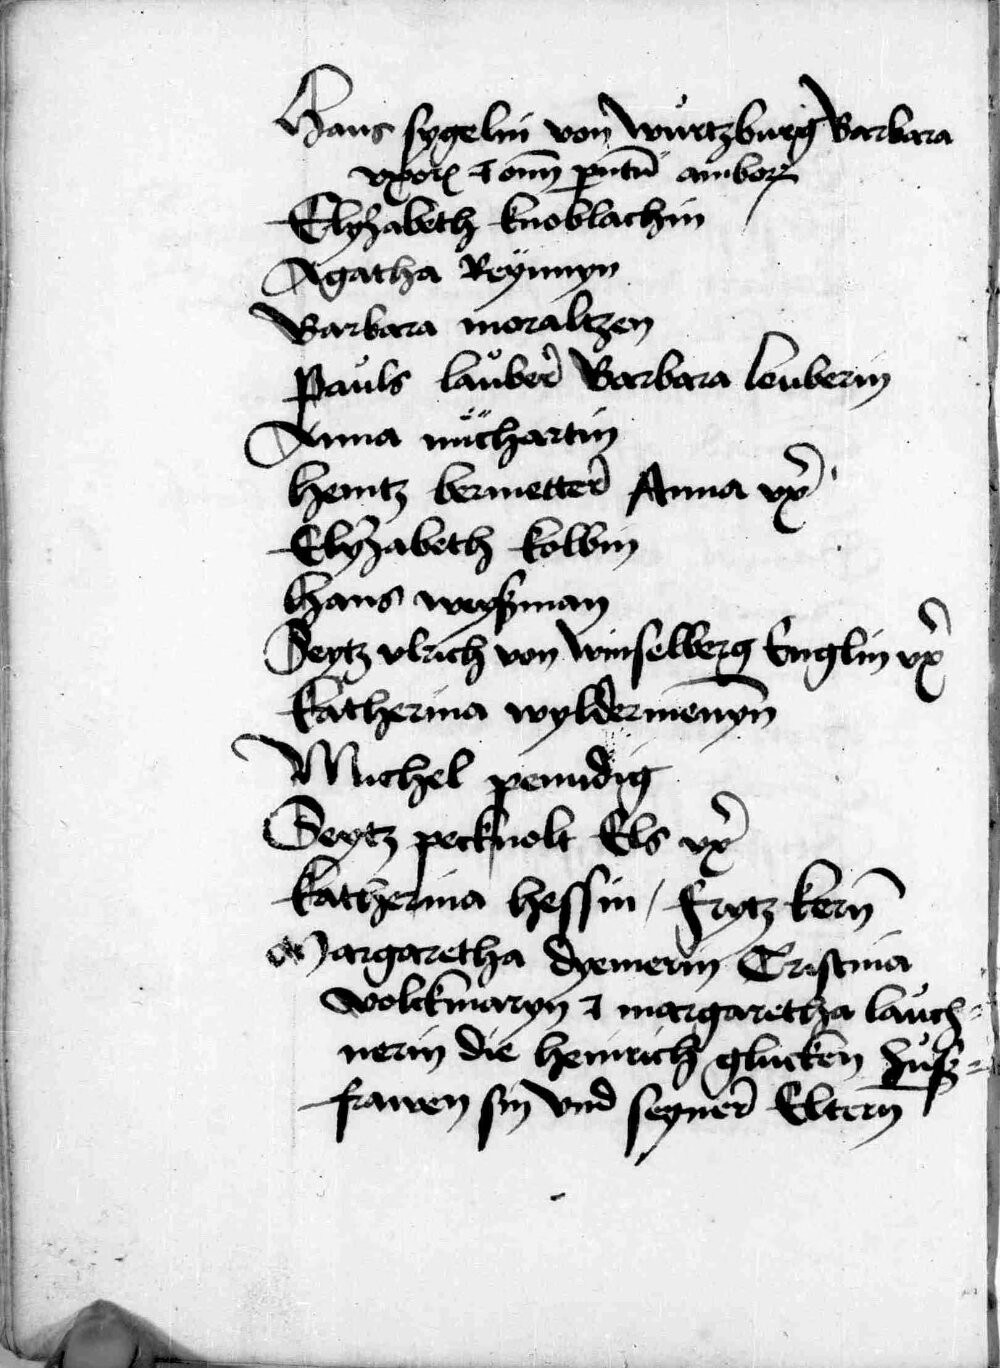 Hans sygelin von würtzburg Barbara
vxor et om̄ parentū ambor
Elyzabeth knoblachin
Agatha Reÿnnyn
Barbara moraltzen
Pauls lauber Barbara leuberin
Anna
heintz bermetter Anna vx
Elyzabeth kolbin
hans weyßman
Seytz vlrich von winselberg Englin vx
Katherina wyldermenyn
Michel penndig
Seytz pecknolt Els vx
Katherina hessin / Frytz kern
Margaretha dyemerin Cristina
volckmaryn et margaretha lauch=
nerin die heinrich glucken hüß=
frawen sin vnd seyner Eltern